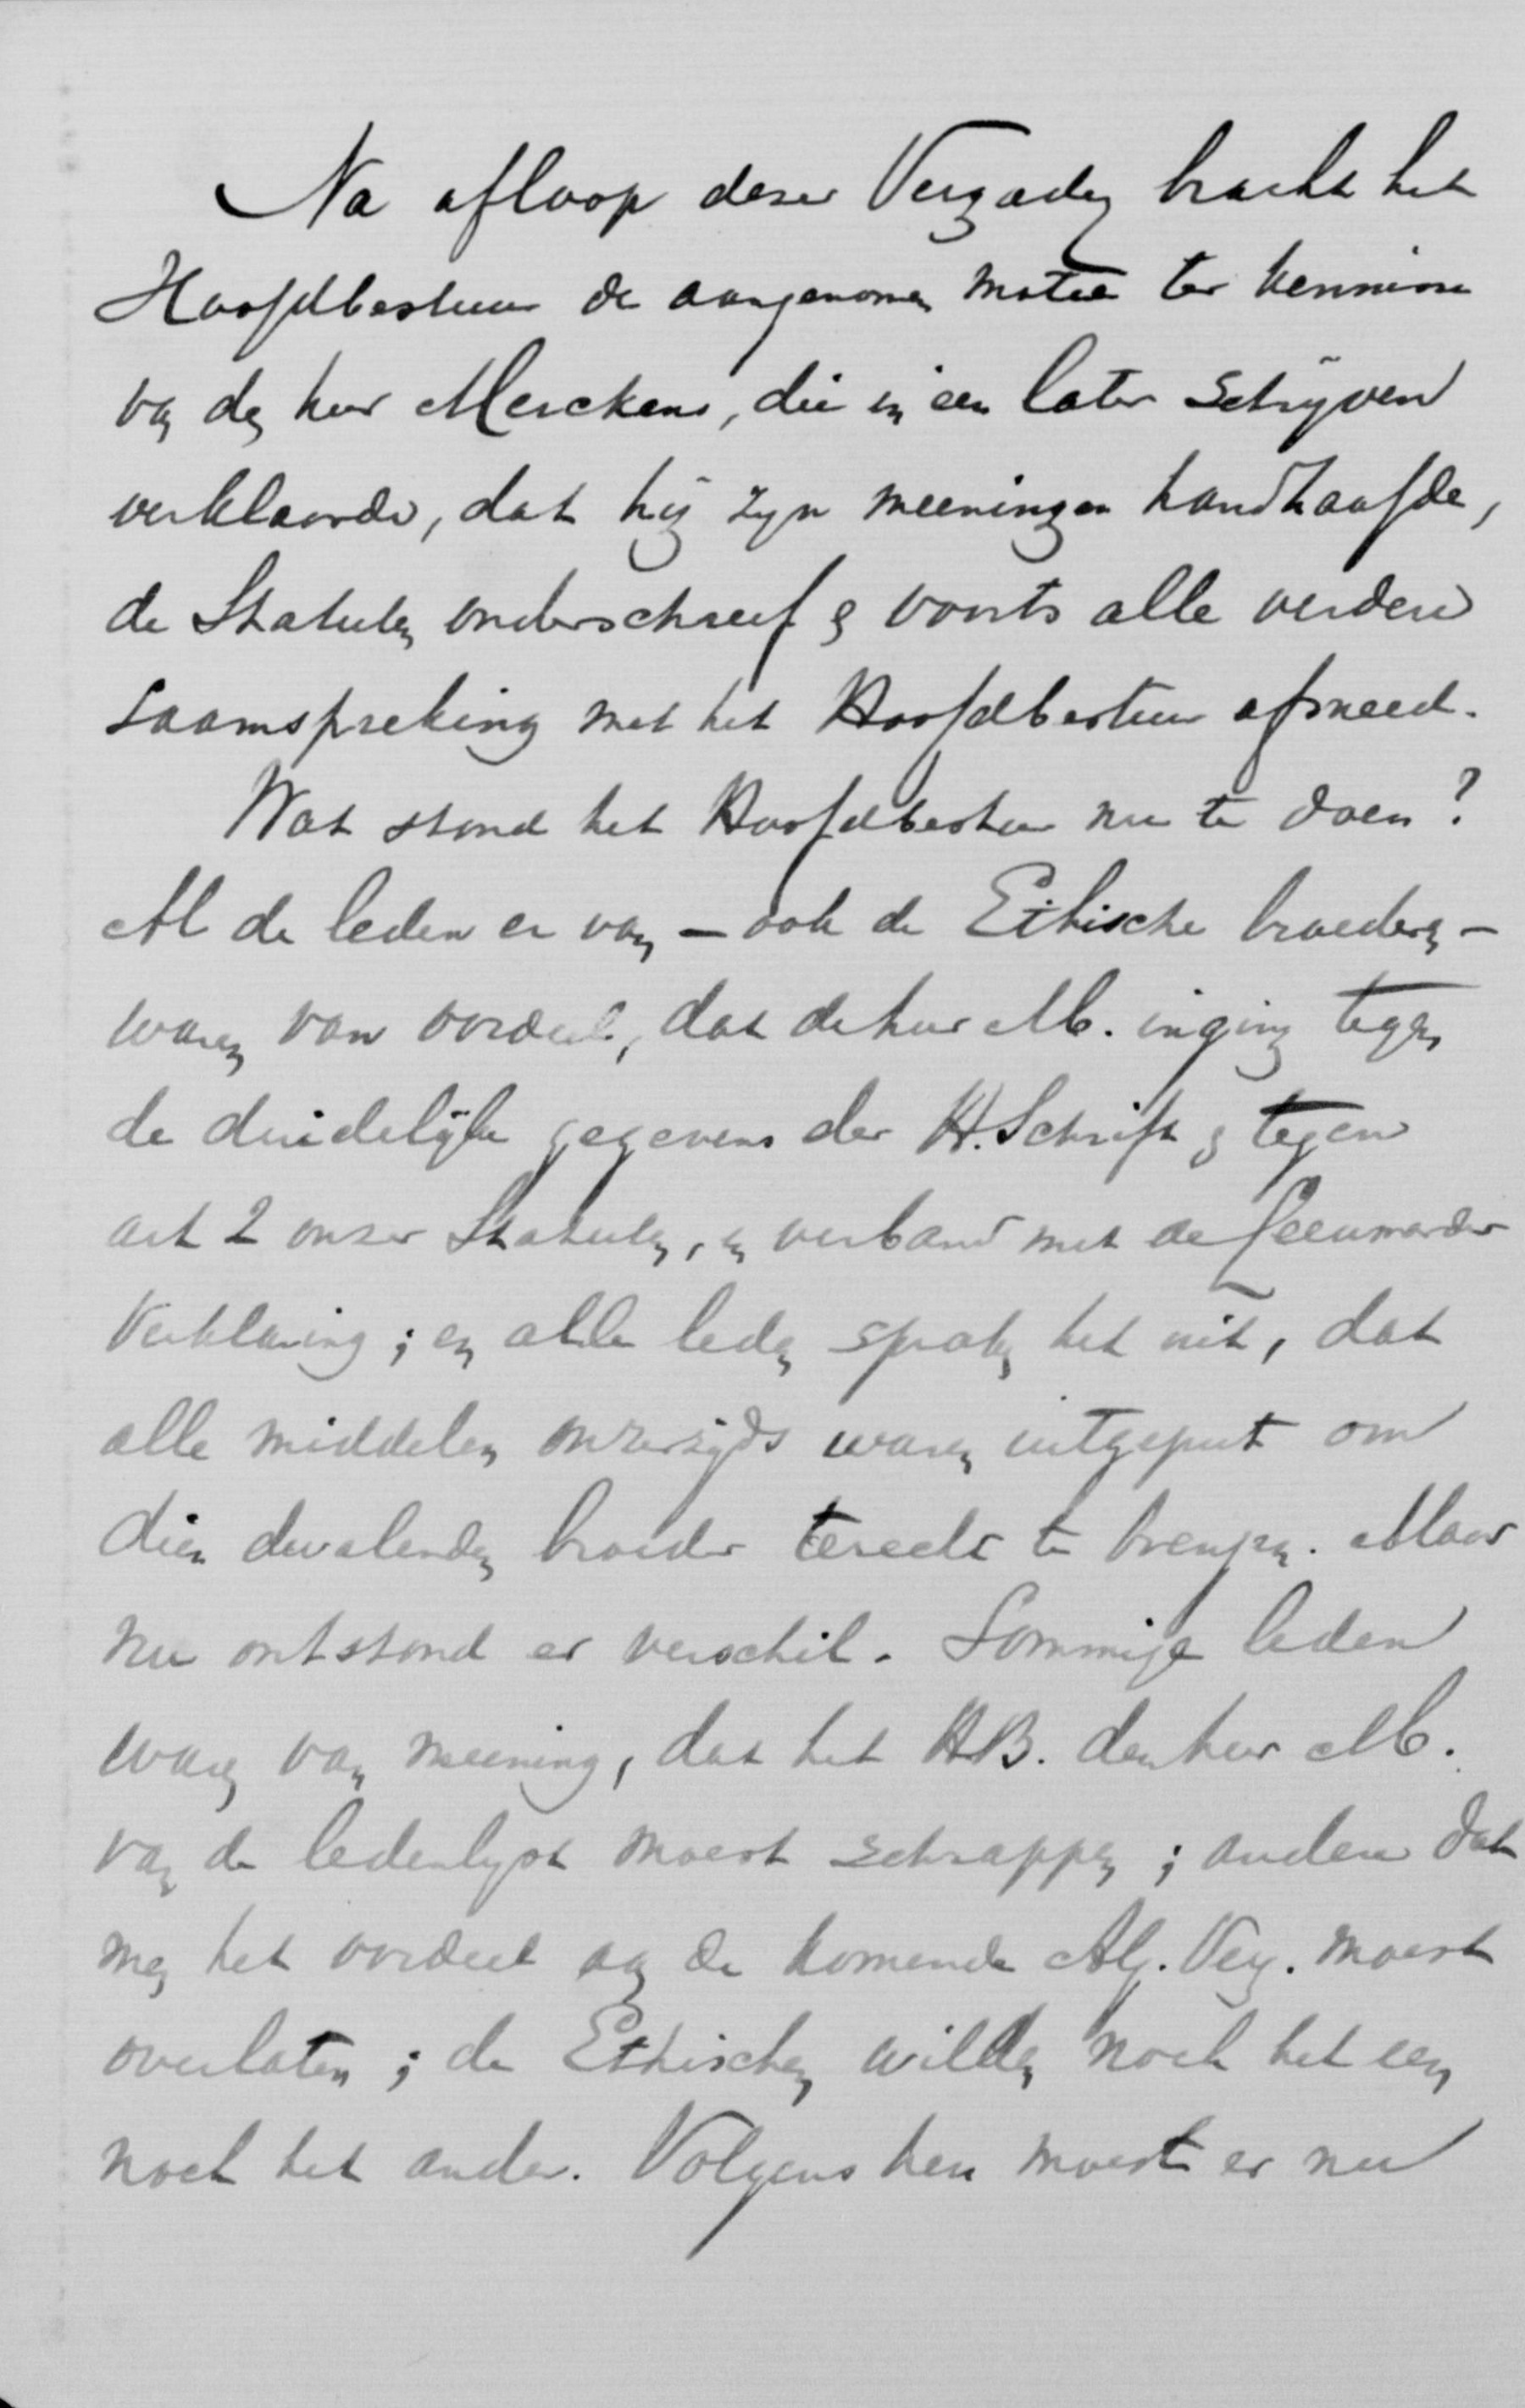 Na afloop dezer Vergadeg bracht het
Hoofdbestuur de aangenomen motie ter kennisse
van den heer Merckens, die in een later schrijven
verklaarde, dat hij zijn meeningen handhaafde,
de Statuten onderschreef & voorts alle verdere
saamspreking met het Hoofdbestuur afsneed.
Wat stond het Hoofdbestuur nu te doen?
Al de leden er van – ook de Ethische broeders –
waren van oordeel, dat de heer M. inging tegen
de duidelijke gegevens der H. Schrift & tegen
art 2 onzer Statuten, in verband met de Leeuwarder
Verklaring; en alle leden spraken het uit, dat
alle middelen onzerzijds waren uitgeput om
dien dwalenden broeder terecht te brengen. Maar
nu ontstond er verschil. Sommige leden
waren van meening, dat het HB. den heer M.
van de ledenlijst moest schrappen; andere dat
men het oordeel aan de komende Alg. Verg. moest
overlaten; de Ethischen wilden noch het een
noch het ander. Volgens hen moest er nu